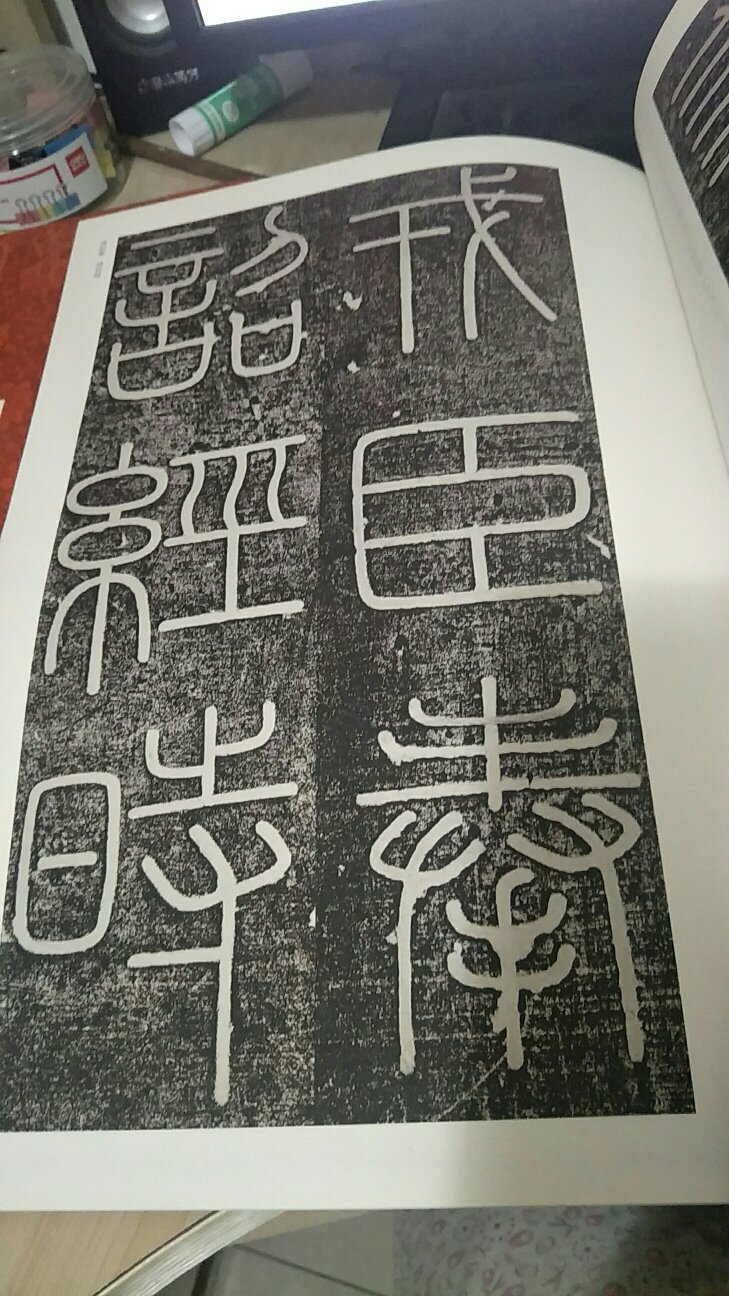 戎臣奉
詔經時